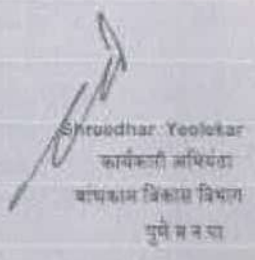 Shreedhar Yeolekar
कार्यकारी अभियंता
बांधकाम विकास विभाग
पुणे म न पा